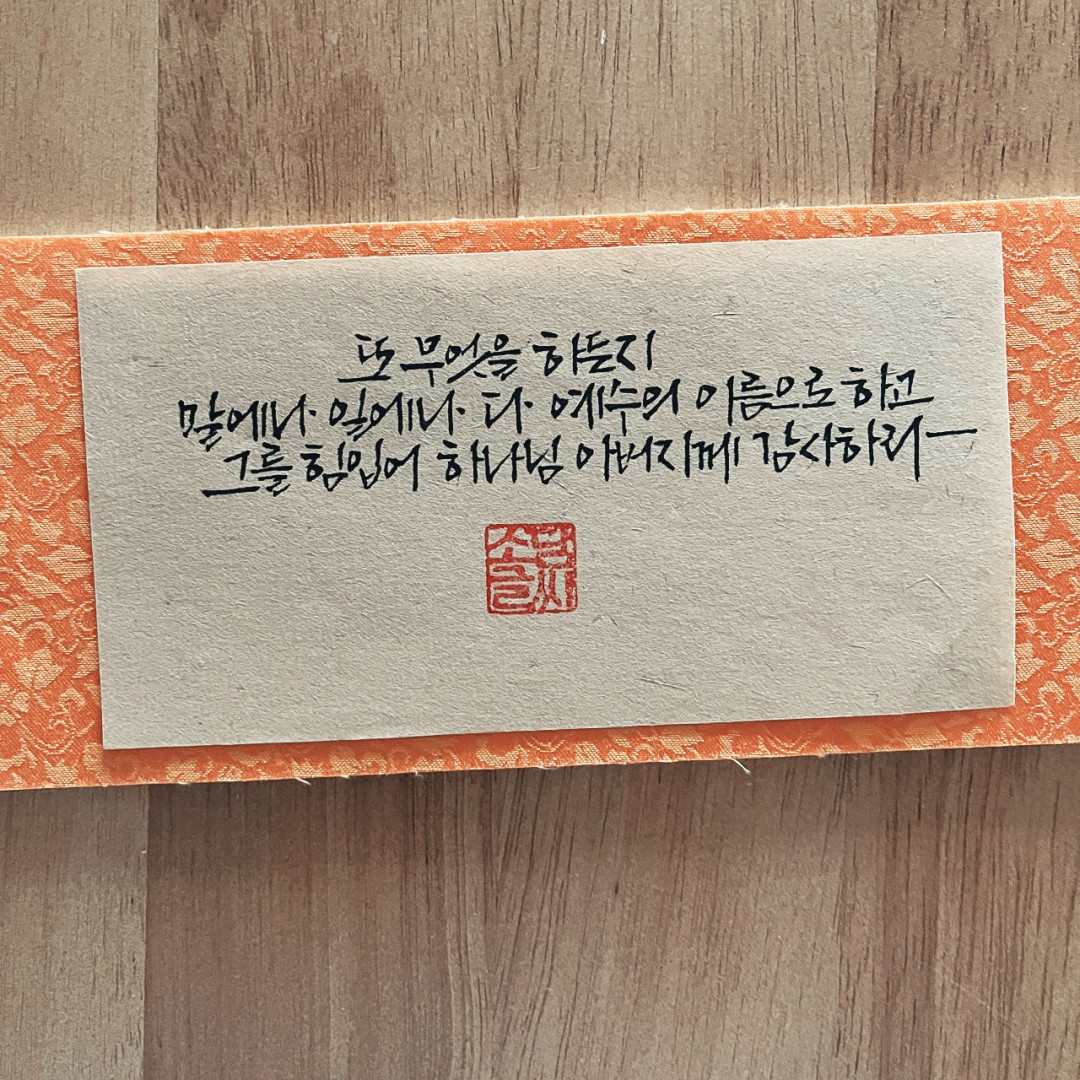 또 무엇을 하든지
말에나 일에나 다 예수의 이름으로 하고
그를 힘입어 하나님 아버지께 감사하라